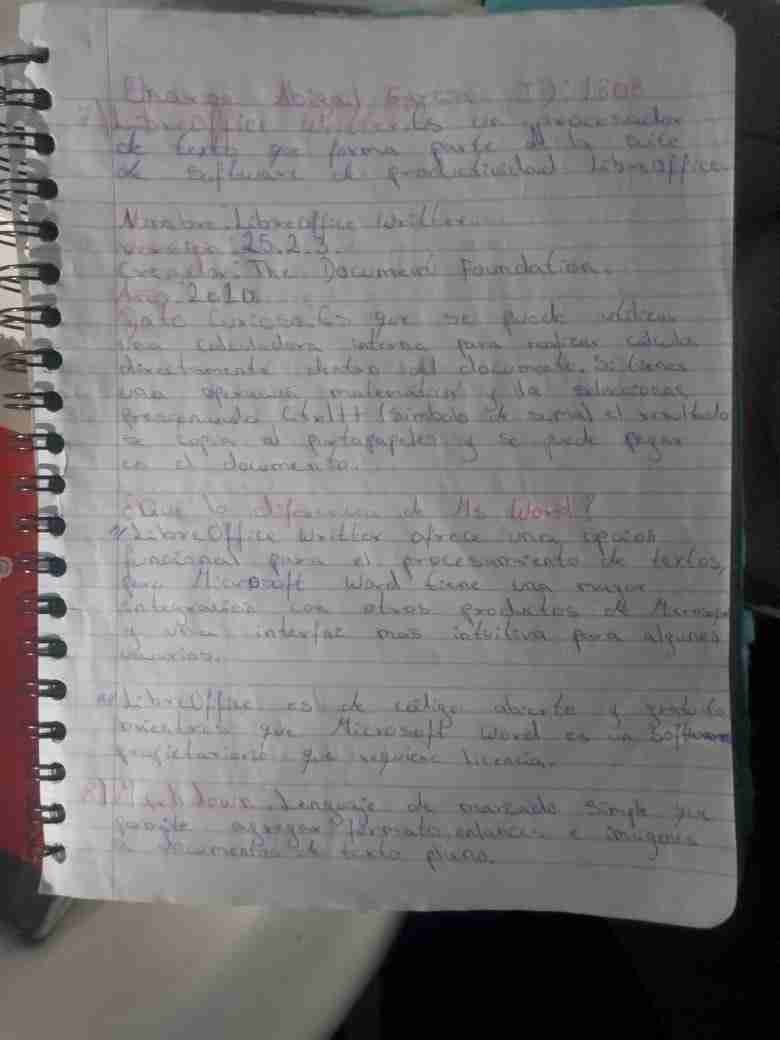 Abigail Garcia ID: 1808
7) LibreOffice Writter. Es un procesador
de texto que forma parte de la suite
de software de productividad LibreOffice.
Nombre: LibreOffice Writter.
Version: 25.2.3.
Creador: The Document Foundation.
Año: 2010
Dato Curioso. Es que se puede utilizar
una calculadora interna para realizar calculo
directamente dentro del documento. Si tienes
una operacion matematica y la seleccionas
presionando Ctrl++ (simbolo de suma) el resultado
se copia al portapapeles y se puede pegar
en el documento.
¿Que lo diferencia de Ms Word?
LibreOffice Writter ofrece una opcion
funcional para el procesamiento de textos,
pero Microsoft Word tiene una mayor
integracion con otros productos de Microsoft
y una interfaz mas intuitiva para algunos
usuarios.
LibreOffice es de código abierto y gratuito
mientras que Microsoft Word es un Software
propietario que requiere licencia.
8) Mark Down. Lenguaje de marcado simple que
permite agregar formato, enlaces e imágenes
a documentos de texto plano.